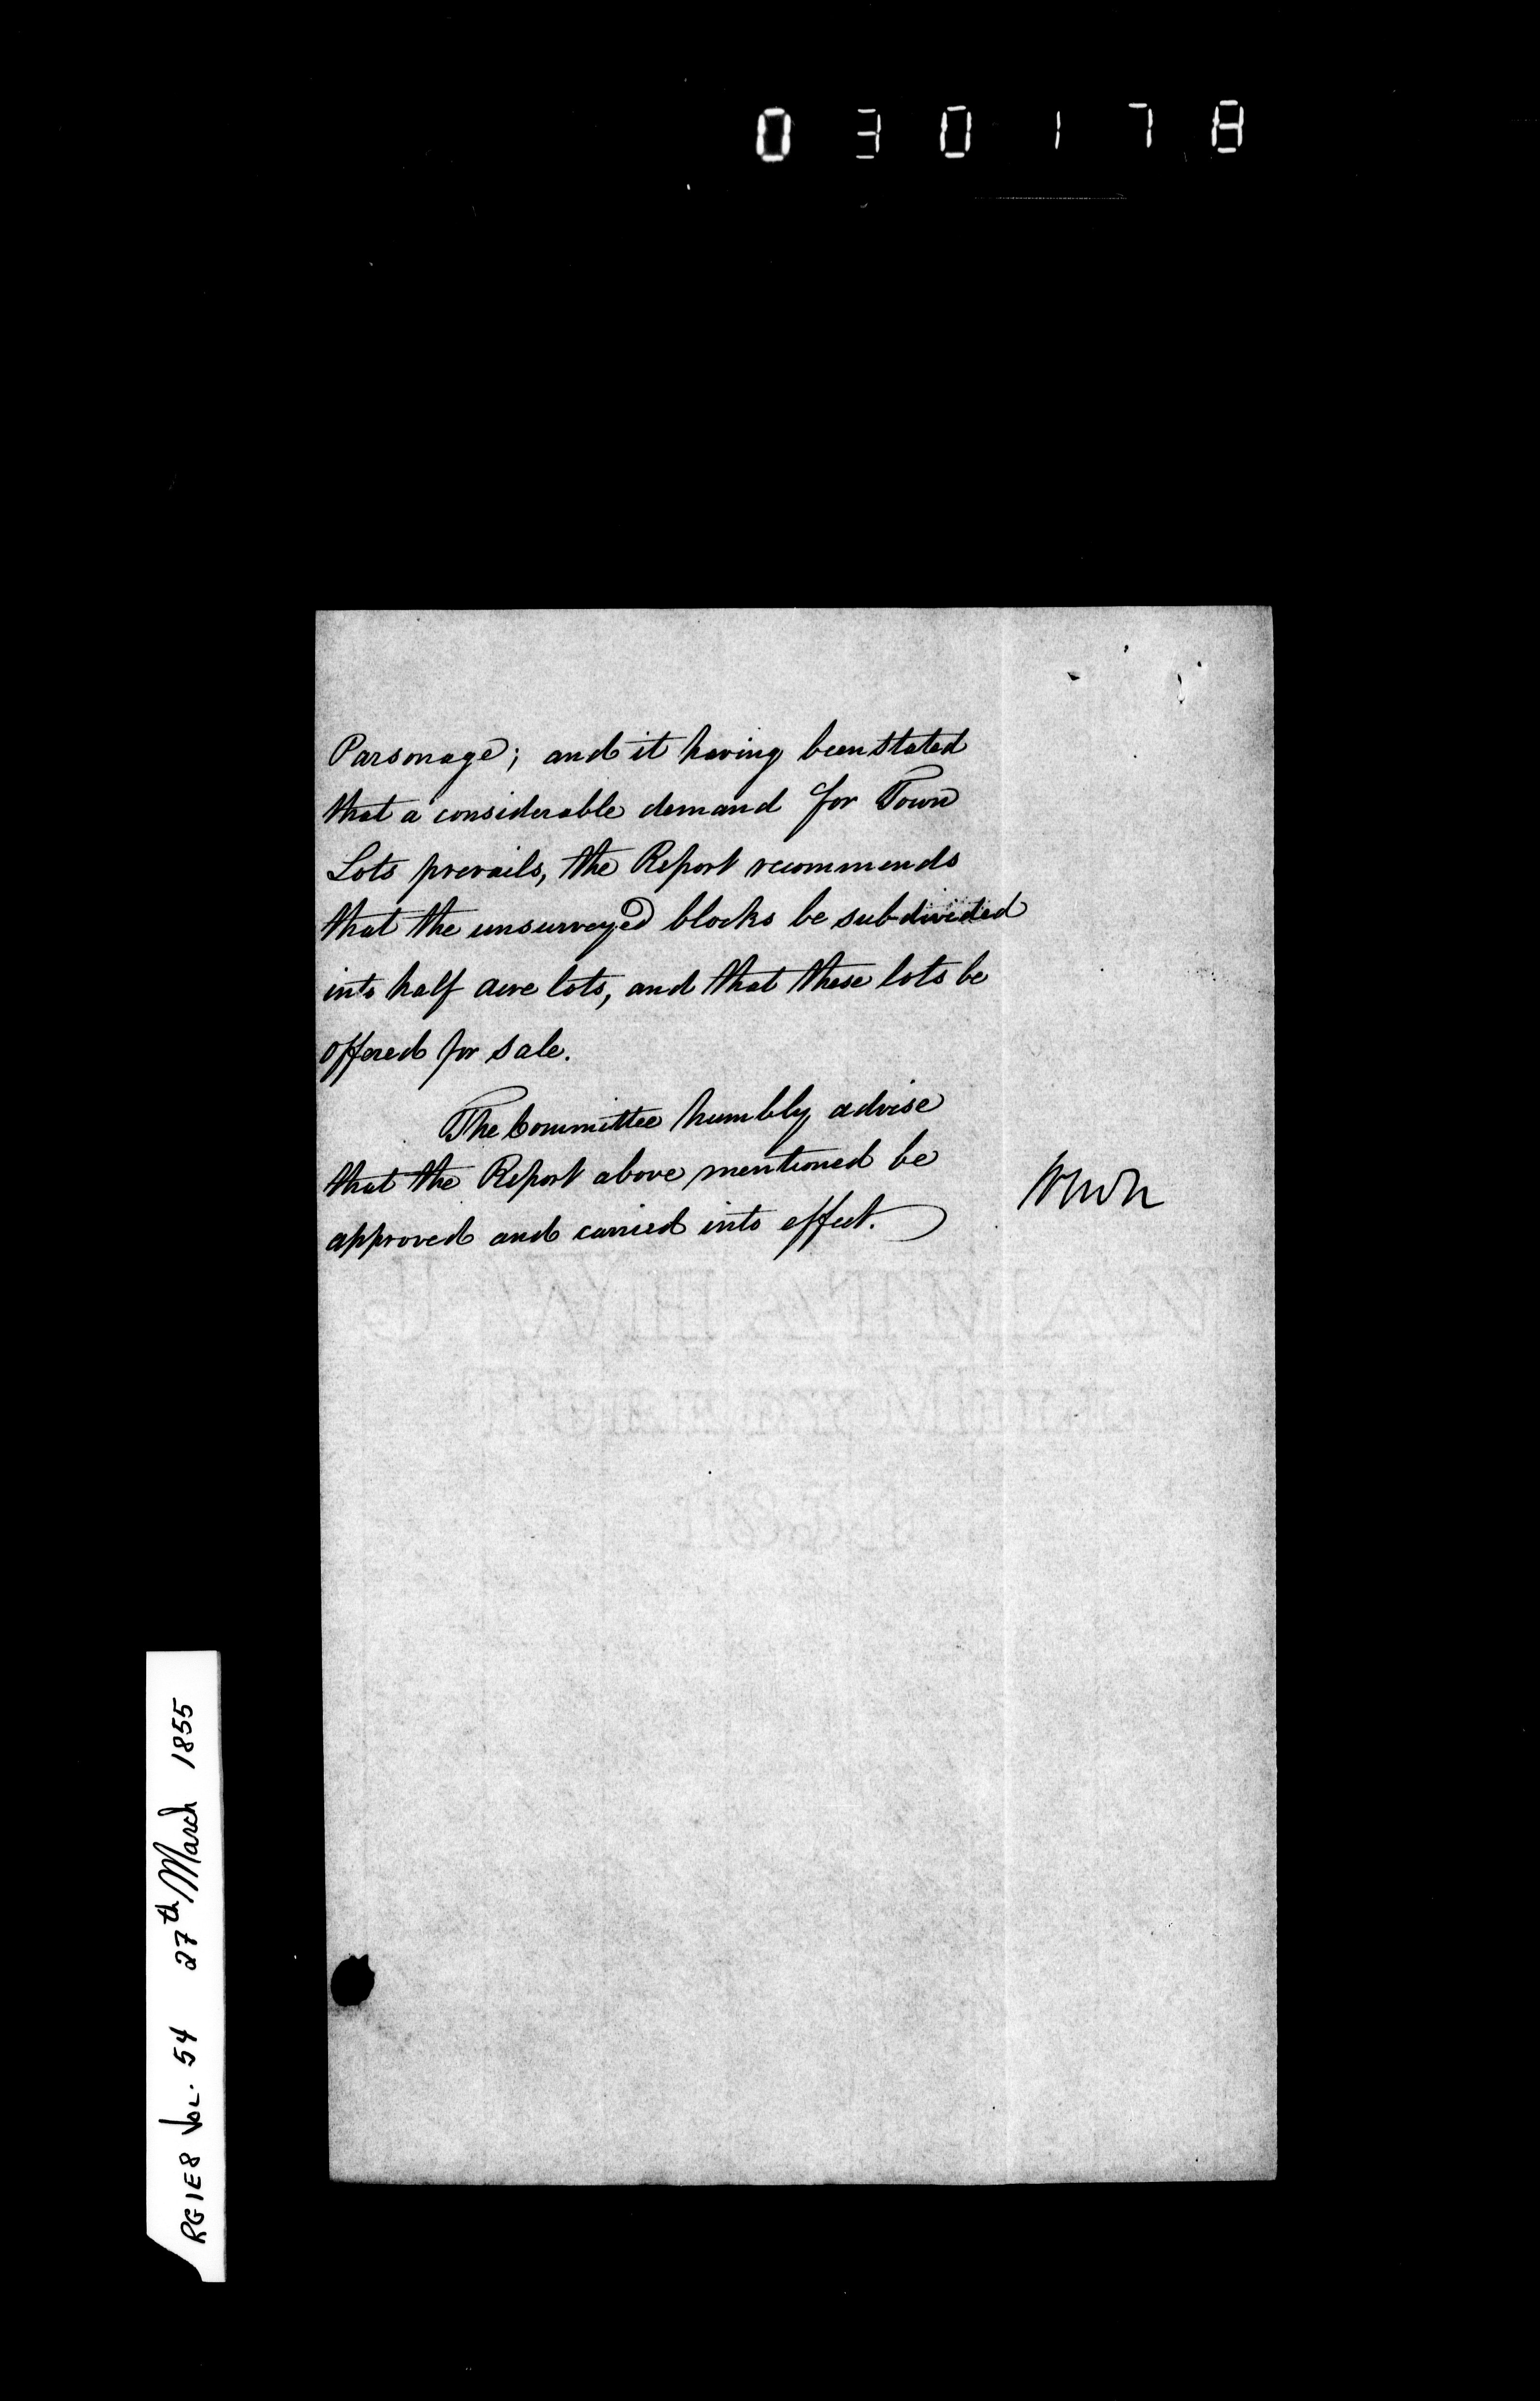 030178
Parsonage; and it having been stated
that a considerable demand for Town
Lots prevails, the Report recommends
that the unsurveyed blocks be subdivided
into half acre lots, and that these lots be
offered for sale.
The Committee humbly advise
that the Report above mentioned be
approved and carried into effect.
J WHATMAN
TURKEY MILL
RG1E8 Vol. 54 27th March 1855